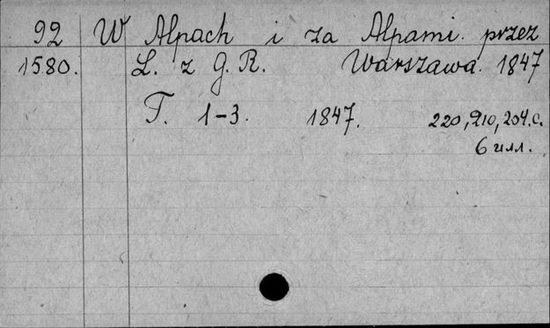 92 W Alpach i za Alpami. przez
1580. L. z G. R. Warszawa. 1847
T. 1-3. 1847. 220, 210, 204.c.
6 илл.